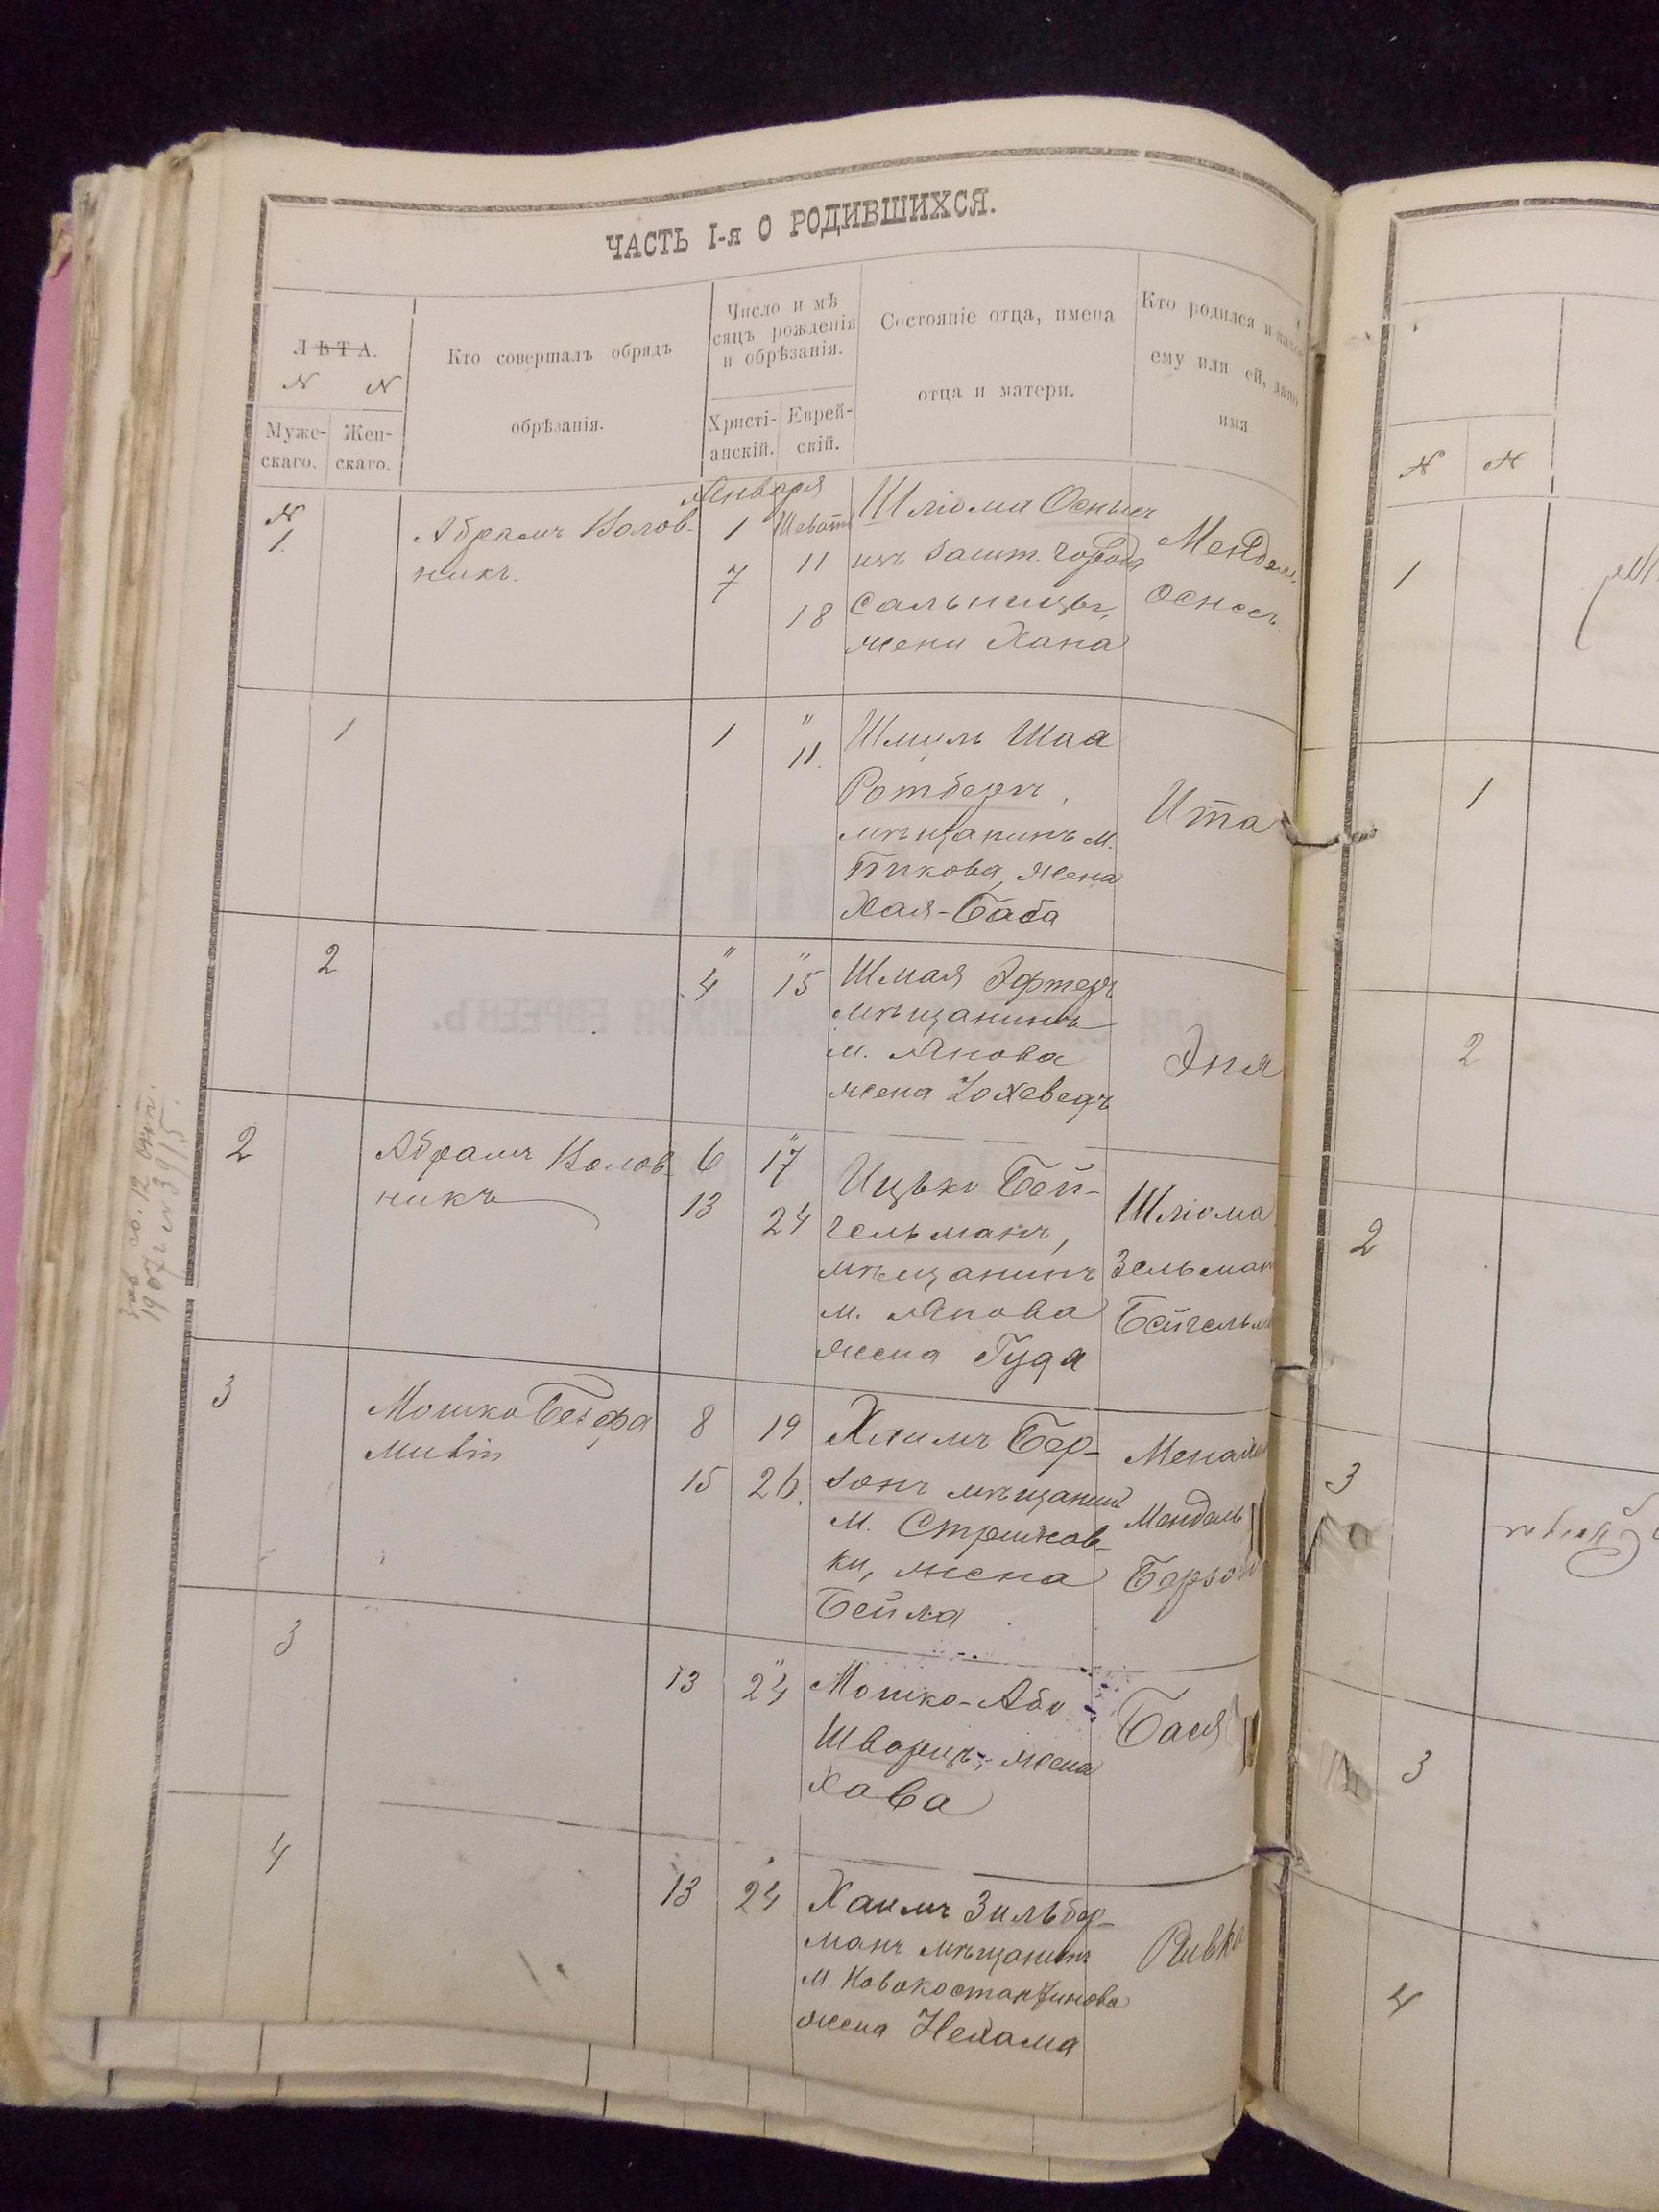 ЧАСТЬ I-я О РОДИВШИХСЯ.
ЛѢТА.
N N
Муже-
скаго.
Жен-
скаго.
Кто совершалъ обрядъ
обрѣзанія.
Число и мѣ
сяцъ рожденія
и обрѣзанія.
Христі-
анскій.
Еврей-
скій.
Состояніе отца, имена
отца и матери.
Кто родился и какое
ему или ей, дано
имя
N
1.
Абрамъ Волов-
никъ.
Января
1
7
Шеватъ
11
18
Шліома Оснись
изъ зашт. города
Сальницы,
жени Хана
Мендель
Оснись
1
1
"
11.
Шмуль Шая
Ротберъ,
мѣщанинъ м.
Пикова, жена
Хая-Баба
Ита
2
"
4
"
15
Шмая Эфтеръ
мѣщанинъ
м. Янова
жена Іохеведъ
Эня
2
Абрамъ Волов-
никъ
6
13
"
17
24.
Ицько Бей-
гельманъ,
мѣщанинъ
м. Янова
жена Гуда
Шліома
Зельман
Бейгельм
зав со. 12 окт.
1907 г. №3915.
3
Мошко
8
15
19
26.
Хаимъ Бер-
зонъ мѣщанин
м. Стрижов-
ки, жена
Бейла
Мендель
Берзон
3
13
"
24
Мошко-Або
Шворцъ, жена
Хава
Бася
4
13
24
Хаимъ Зильбер-
манъ мѣщанинъ
м. Новокостантинова
жена Нехама
Ривка
N N
1
1
2
2
3
3
4